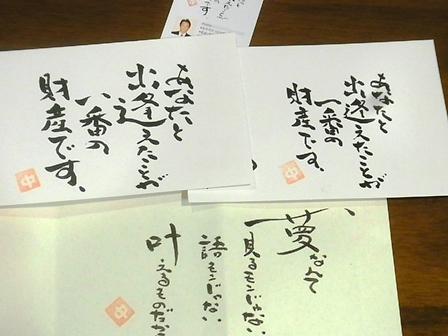 あなたと
出逢えたことが
一番の
財産です、
中
あなたと
出逢えたことが
一番の
財産です、
中
夢なんて
見るモンじゃない
語モンじゃない
叶えるものだから
中